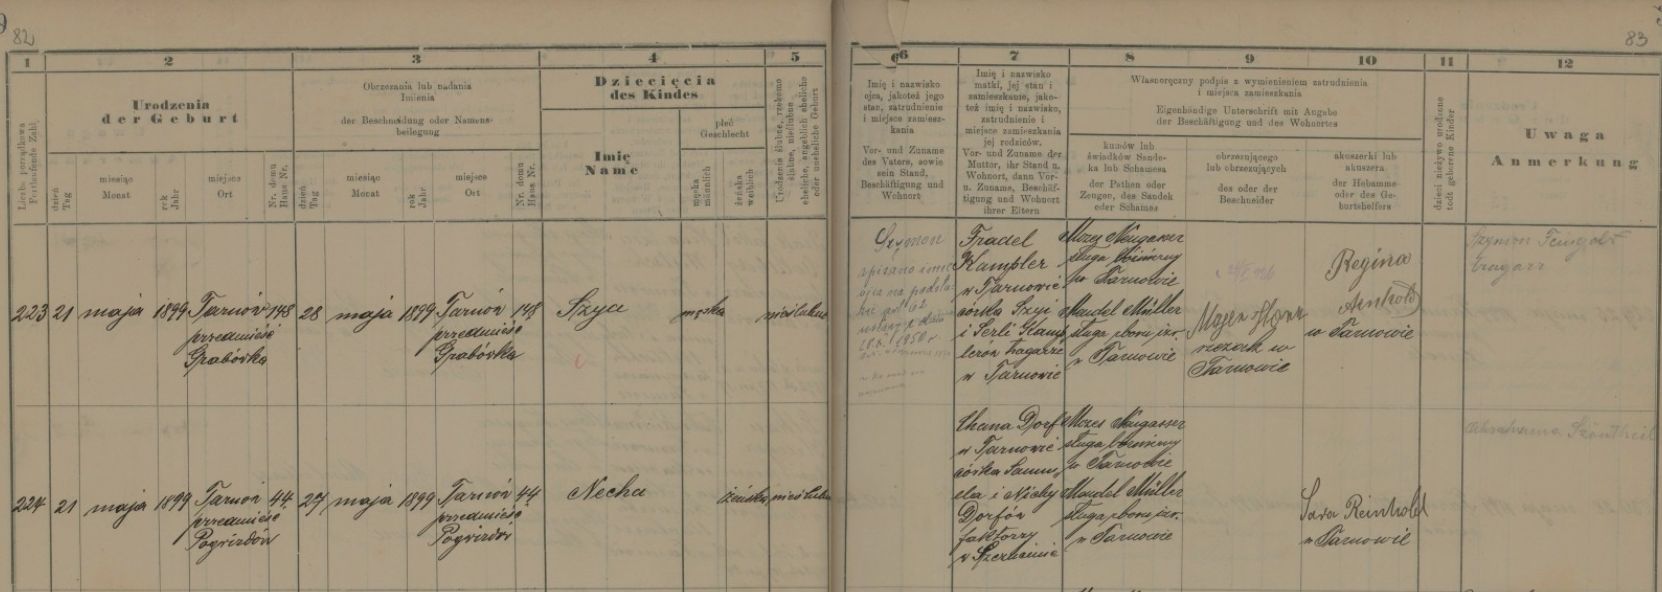 82
83
1
2
3
4
5
6
7
8
9
10
11
12
Liczba porządkowa
Fortlaufende Zahl
Urodzenia
der Geburt
dzień
Tag
miesiąc
Monat
rok
Jahr
miejsce
Ort
Nr. domu
Haus Nr.
Obrzezania lub nadania
Imienia
der Beschneidung oder Namens-
beilegung
dzień
Tag
miesiąc
Monat
rok
Jahr
miejsce
Ort
Nr. domu
Haus Nr.
Dziecięcia
des Kindes
Imię
Name
płeć
Geschlecht
męska
männlich
żeńska
weiblich
Urodzenie ślubne, rzekomo
ślubne, nieślubne
eheliche, angeblich eheliche
oder uneheliche Geburt
Imię i nazwisko
ojca, jakoteż jego
stan, zatrudnienie
i miejsce zamiesz-
kania
Vor- und Zuname
des Vaters, sowie
sein Stand,
Beschäftigung und
Wohnort
Imię i nazwisko
matki, jej stan i
zamieszkanie, jako-
też imię i nazwisko,
zatrudnienie i
miejsce zamieszkania
jej rodziców.
Vor- und Zuname der
Mutter, ihr Stand u.
Wohnort, dann Vor-
u. Zuname, Beschäf-
tigung und Wohnort
ihrer Eltern
Własnoręczny podpis z wymienieniem zatrudnienia
i miejsca zamieszkania
Eigenhändige Unterschrift mit Angabe
der Beschäftigung und des Wohnortes
kumów lub
świadków Sande-
ka lub Schamesa
der Pathen oder
Zeugen, des Sandek
oder Schames
obrzezującego
lub obrzezujących
des oder der
Beschneider
akuszerki lub
akuszera
der Hebamme
oder des Ge-
burtshelfers
dzieci nieżywo urodzone
todt geborene Kinder
Uwaga
Anmerkung
223 21 maja 1899 Tarnów 148
przedmieście
Grabówka
28 maja 1899 Tarnów 148
przedmieście
Grabówka
Szya
męska
nieślubne
Szymon
wpisano imię
ojca na podsta-
Fradel
Kampler
w Tarnowie
córka Szyi
i Serli Kamp
lerów tragarze
w Tarnowie
Mozes Neugasser
sługa
w Tarnowie
Mendel Müller
sługa zboru izr.
w Tarnowie
rzezak w
Tarnowie
Regina
w Tarnowie
Szymon Feingold
tragarz
224 21 maja 1899 Tarnów 44
przedmieście
Pogwizdów
27 maja 1899 Tarnów 44
przedmieście
Pogwizdów
Necha
żeńska
nieślubne
Chana Dorf
w Tarnowie
córka Samu
ela i Nichy
Dorfów
faktorzy
w
Mozes Neugasser
sługa
w Tarnowie
Mendel Müller
sługa zboru izr.
w Tarnowie
Sara Reinhold
w Tarnowie